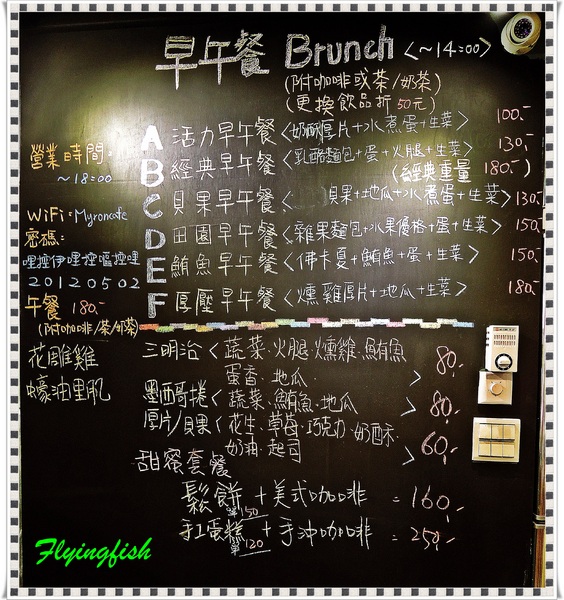 早午餐 Brunch <~14:00>
(附咖啡或茶/奶茶)
(更換飲品折50元)
A 活力早午餐<奶酥厚片+水煮蛋+生菜> 100.-
B 經典早午餐<乳酪麵包+蛋+火腿+生菜> 130.-
(經典重量 180.-)
C 貝果早午餐< 貝果+地瓜+水煮蛋+生菜> 130.-
D 田園早午餐<雜果麵包+水果優格+蛋+生菜> 150.-
E 鮪魚早午餐<佛卡夏+鮪魚+蛋+生菜> 150.-
F 厚壓早午餐<燻雞厚片+地瓜+生菜> 180.-
營業時間:
~18:00
WiFi:Myroncafe
密碼:
哩控伊哩控嗂控哩
20120502
午餐 180.-
(附咖啡/茶/奶茶)
花雕雞
蠔油里肌
三明治<蔬菜.火腿.燻雞.鮪魚
蛋香.地瓜. > 80.-
墨西哥捲<蔬菜.鮪魚.地瓜 > 80.-
厚片/貝果<花生.草莓.巧克力.奶酥.
奶油.起司 > 60.-
甜蜜套餐
鬆餅+美式咖啡 = 160.-
單150
手工蛋糕+手沖咖啡 = 250.-
單120
Flyingfish